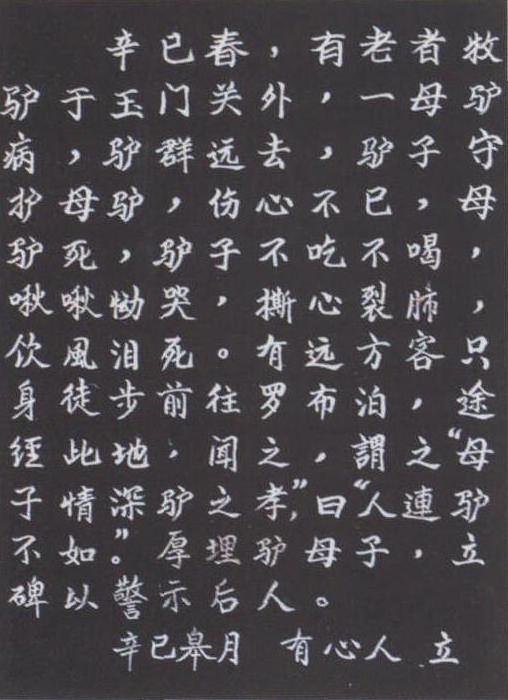 辛巳春，有老者牧
驴于玉门关外，一母驴
病，驴群远去，驴子守
护母驴，伤心不已，母
驴死，驴子不吃不喝，
啾啾恸哭，撕心裂肺，
饮風泪死。有远方客只
身徒步前往罗布泊，途
经此地，闻之，謂之“母
子情深驴之孝”，曰“人連驴
不如。”厚埋驴母子，立
碑以警示后人。
辛巳皋月 有心人 立